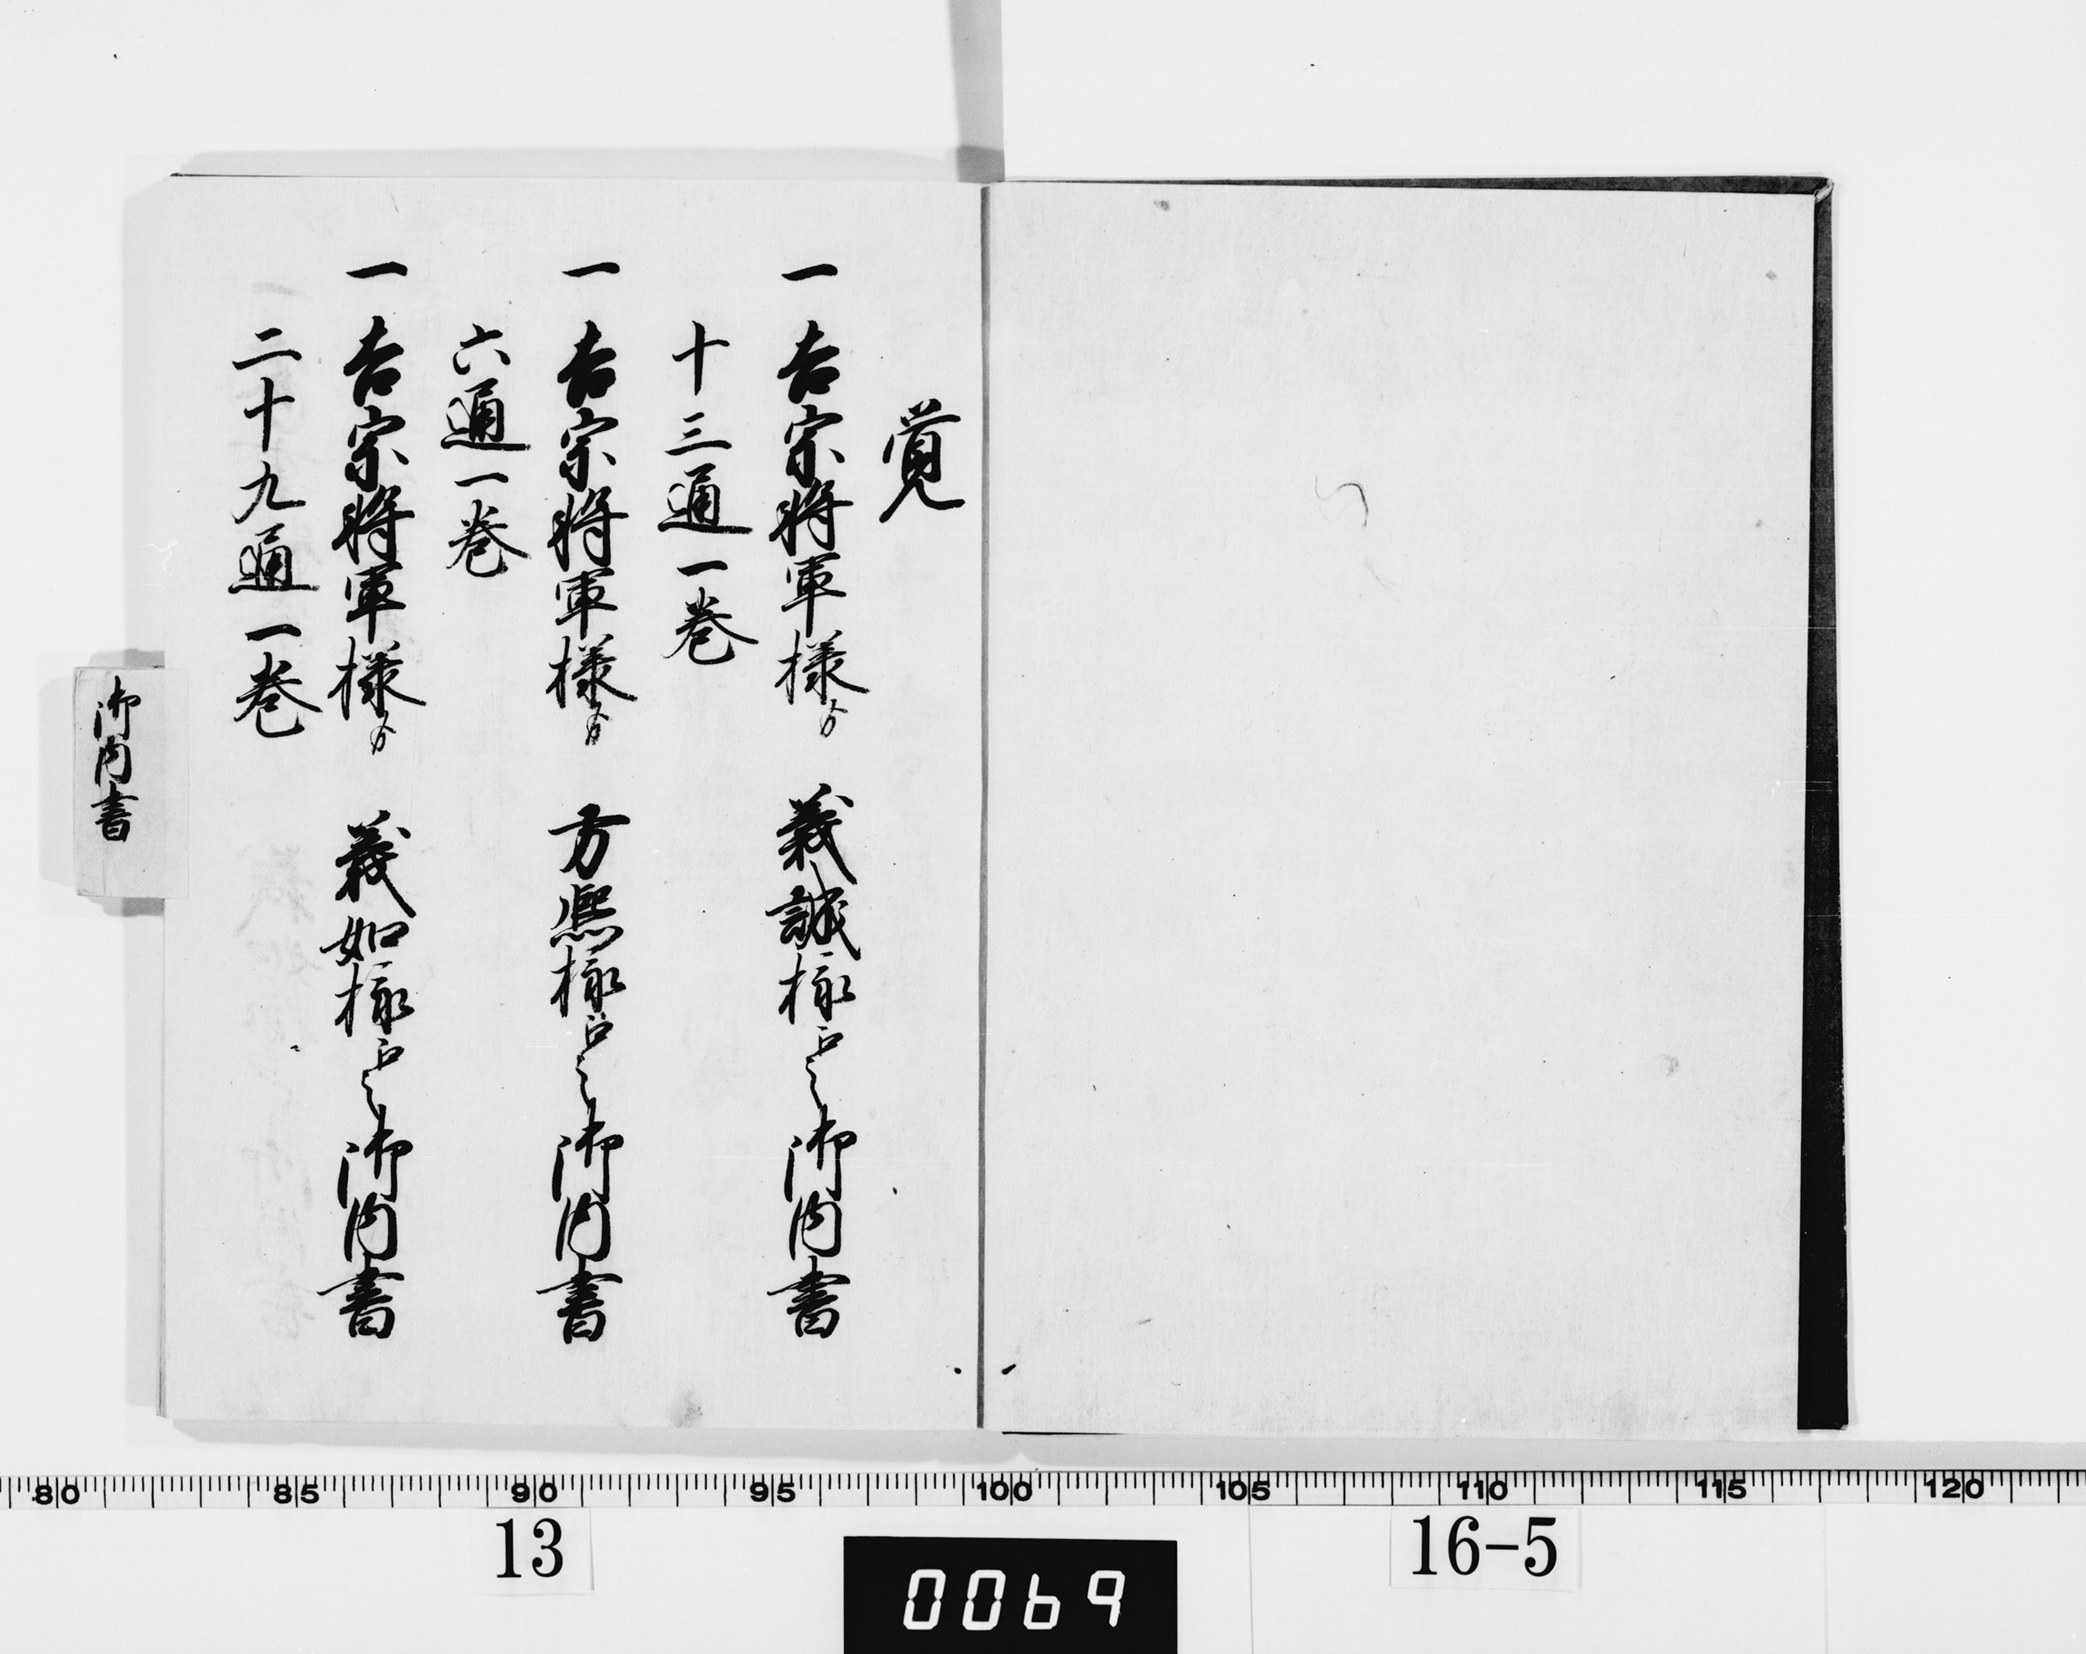 覚
一 吉宗将軍様ゟ 義誠様江之御内書
十三通一巻
一 吉宗将軍様ゟ 方熈様江之御内書
六通一巻
一 吉宗将軍様ゟ 義如様江之御内書
二十九通一巻
御内書
80 85 90 95 100 105 110 115 120
13
16-5
0069